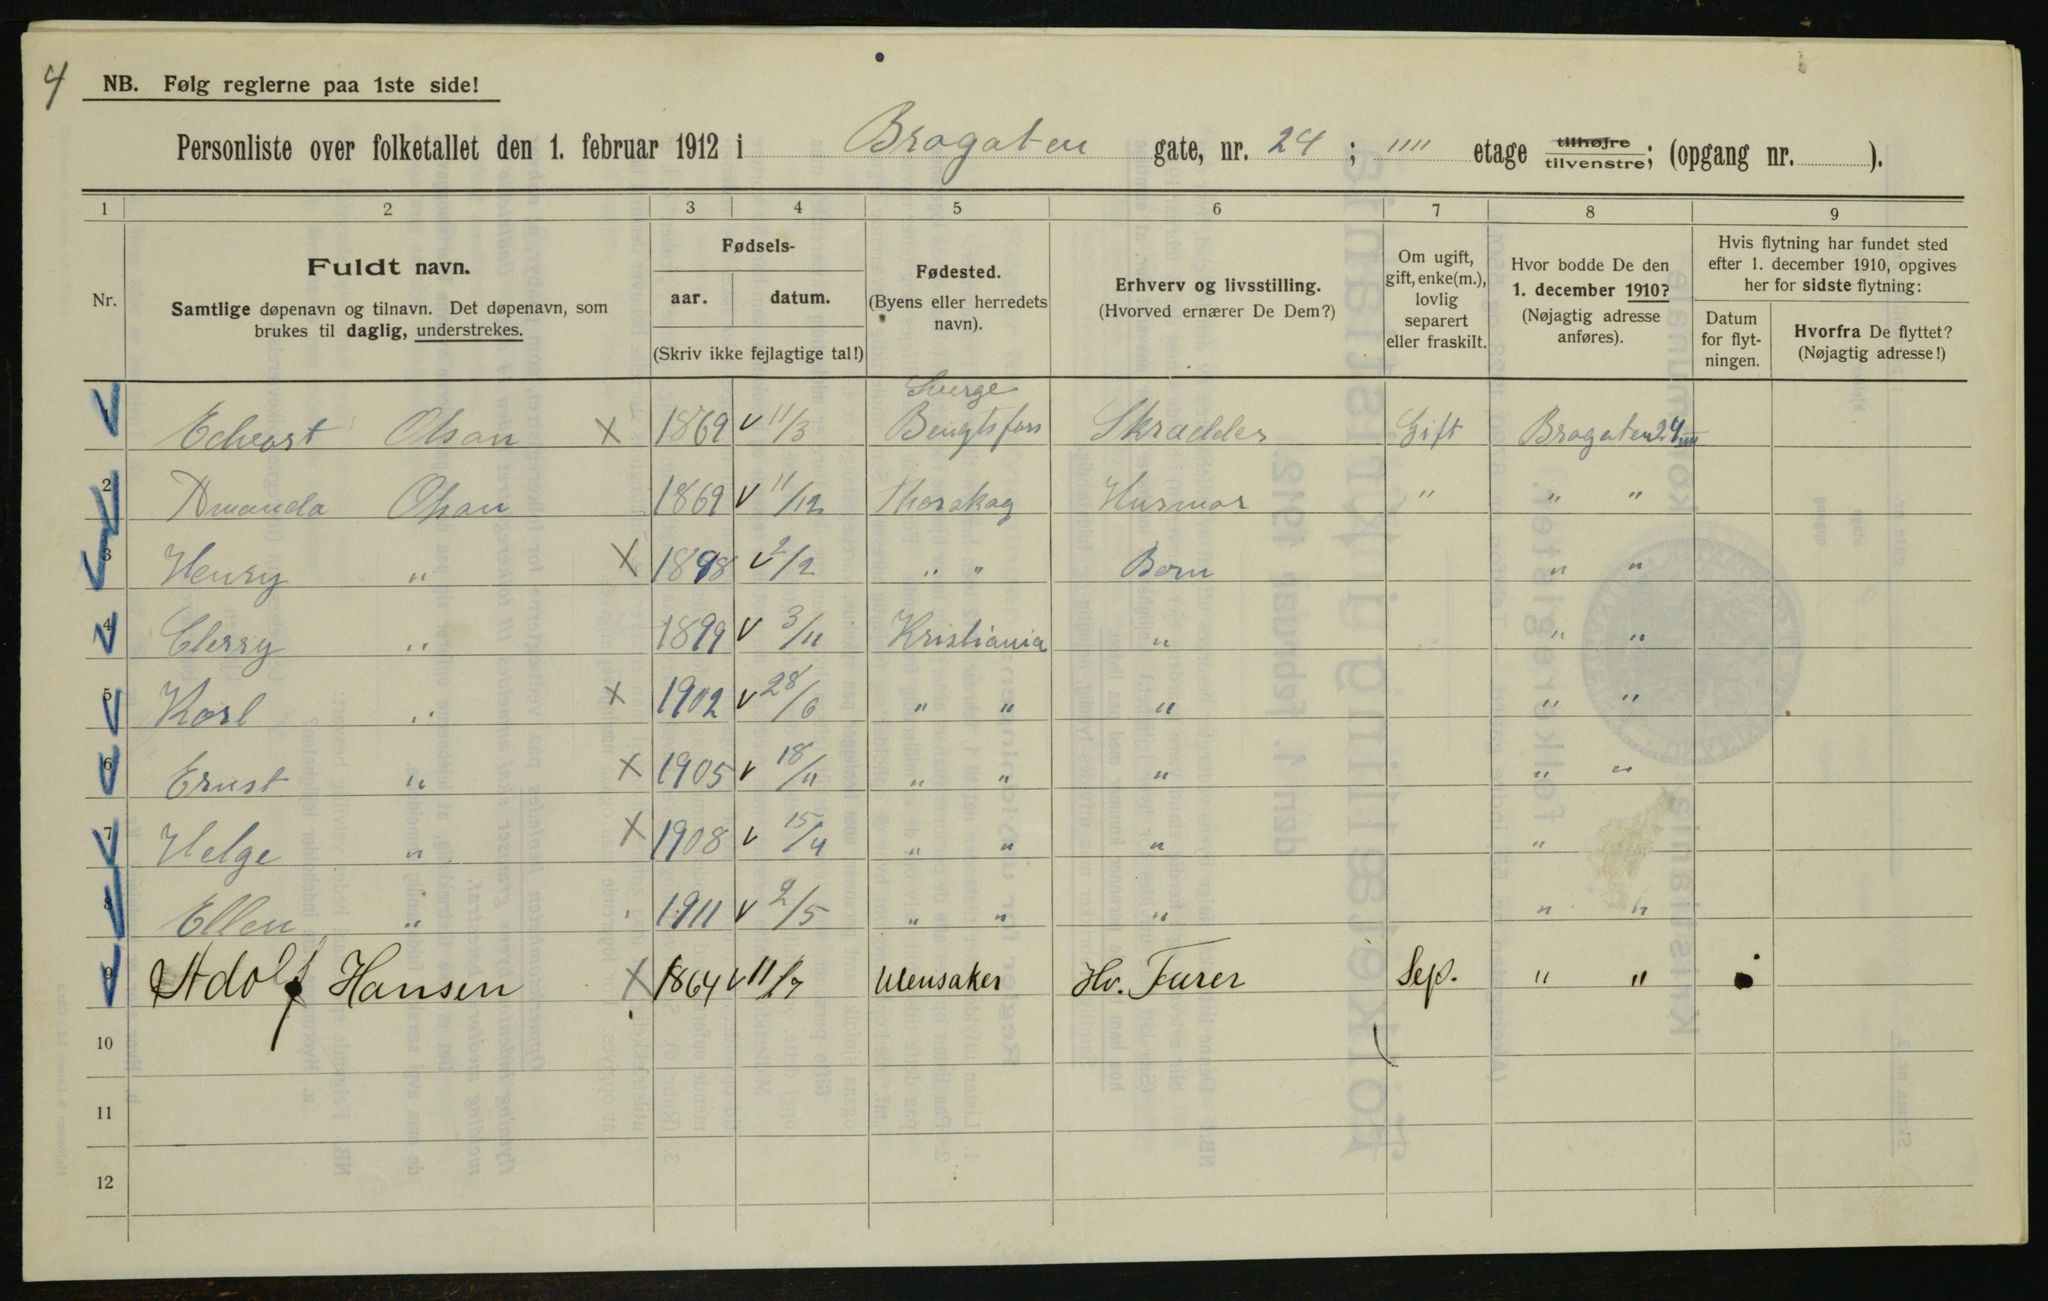 4
NB. Følg reglerne paa 1ste side!
Personliste over folketallet den 1. februar 1912 i Brogaten gate, nr. 24; "" etage tilhøjre tilvenstre; (opgang nr. ).
1 2 3 4 5 6 7 8 9
Nr.
Fuldt navn.
Samtlige døpenavn og tilnavn. Det døpenavn, som
brukes til daglig, understrekes.
Fødsels-
aar. datum.
(Skriv ikke fejlagtige tal!)
Fødested.
(Byens eller herredets
navn).
Erhverv og livsstilling.
(Hvorved ernærer De Dem?)
Om ugift,
gift, enke(m.),
lovlig
separert
eller fraskilt.
Hvor bodde De den
1. december 1910?
(Nøjagtig adresse
anføres).
Hvis flytning har fundet sted
efter 1. december 1910, opgives
her for sidste flytning:
Datum
for flyt-
ningen.
Hvorfra De flyttet?
(Nøjagtig adresse!)
Sverge
1 Edvart Olsan X 1869 v 11/3 Bengtsfors Skrædder Gift Brogaten 24 IIII
2 Amanda Olsan 1869 v 11/12 Thorskog Husmor " " "
3 Henry " X 1898 v 2/2 " " Born " "
4 Cherry " 1899 v 3/11 Kristiania " " "
5 Karl " X 1902 v 28/6 " " " " "
6 Ernst " X 1905 v 18/11 " " " " "
7 Helge " X 1908 v 15/4 " " " "
8 Ellen " 1911 v 2/5 " " " " "
9 Adolf Hansen X 1864 v 11/7 Ulensaker Hv. Furer Sep. " "
10
11
12